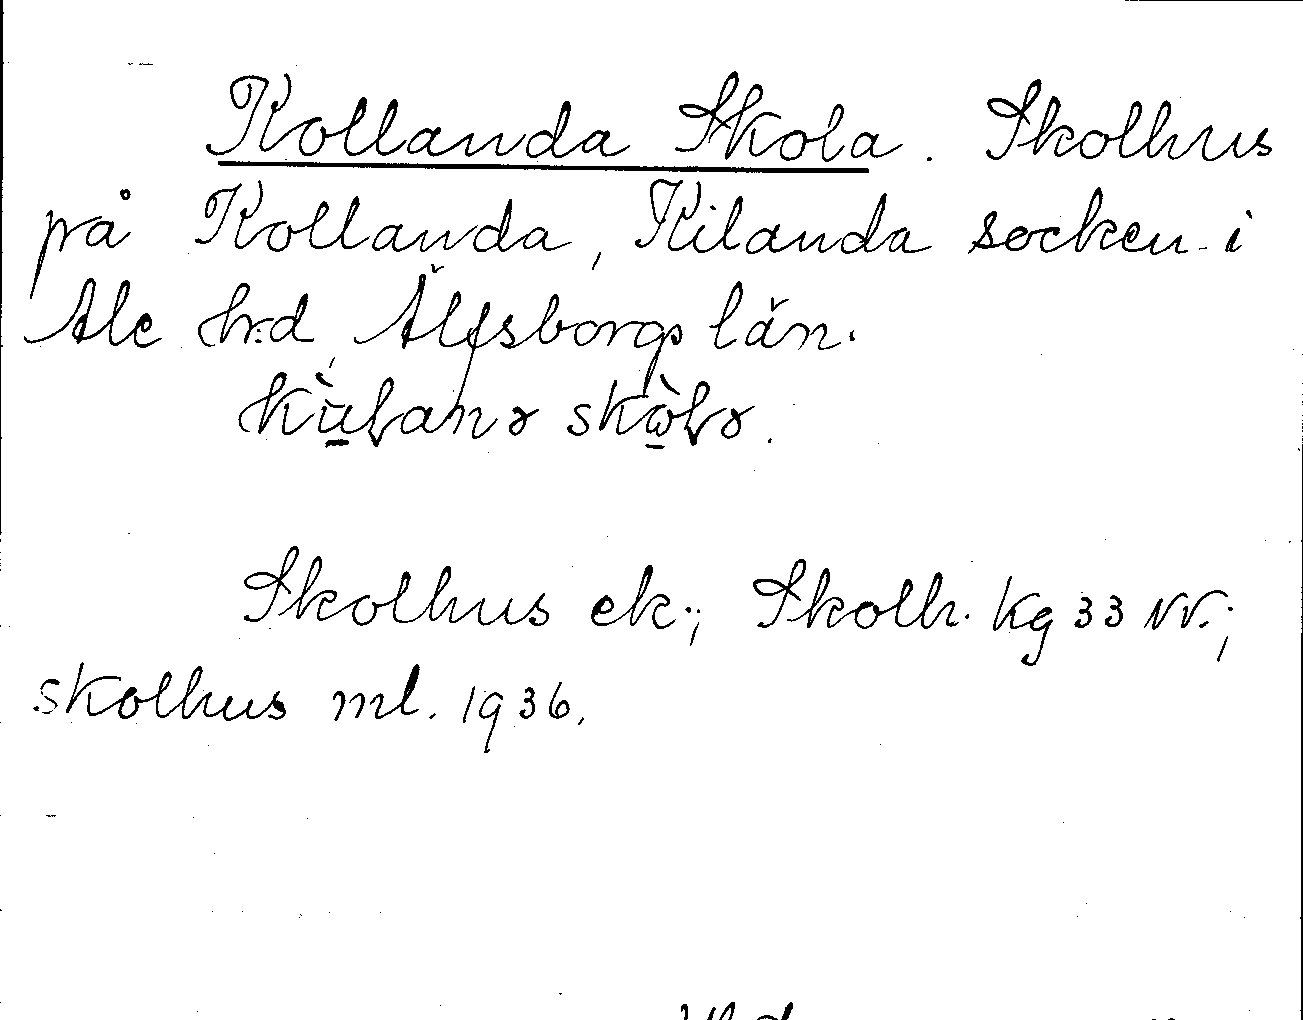 Kollanda Skola. Skolhus
på Kollanda, Kilanda socken i
Ale hrd, Älfsborgs län.
Skolhus ek; Skolh. Kg 33 NV.;
skolhus ml. 1936.